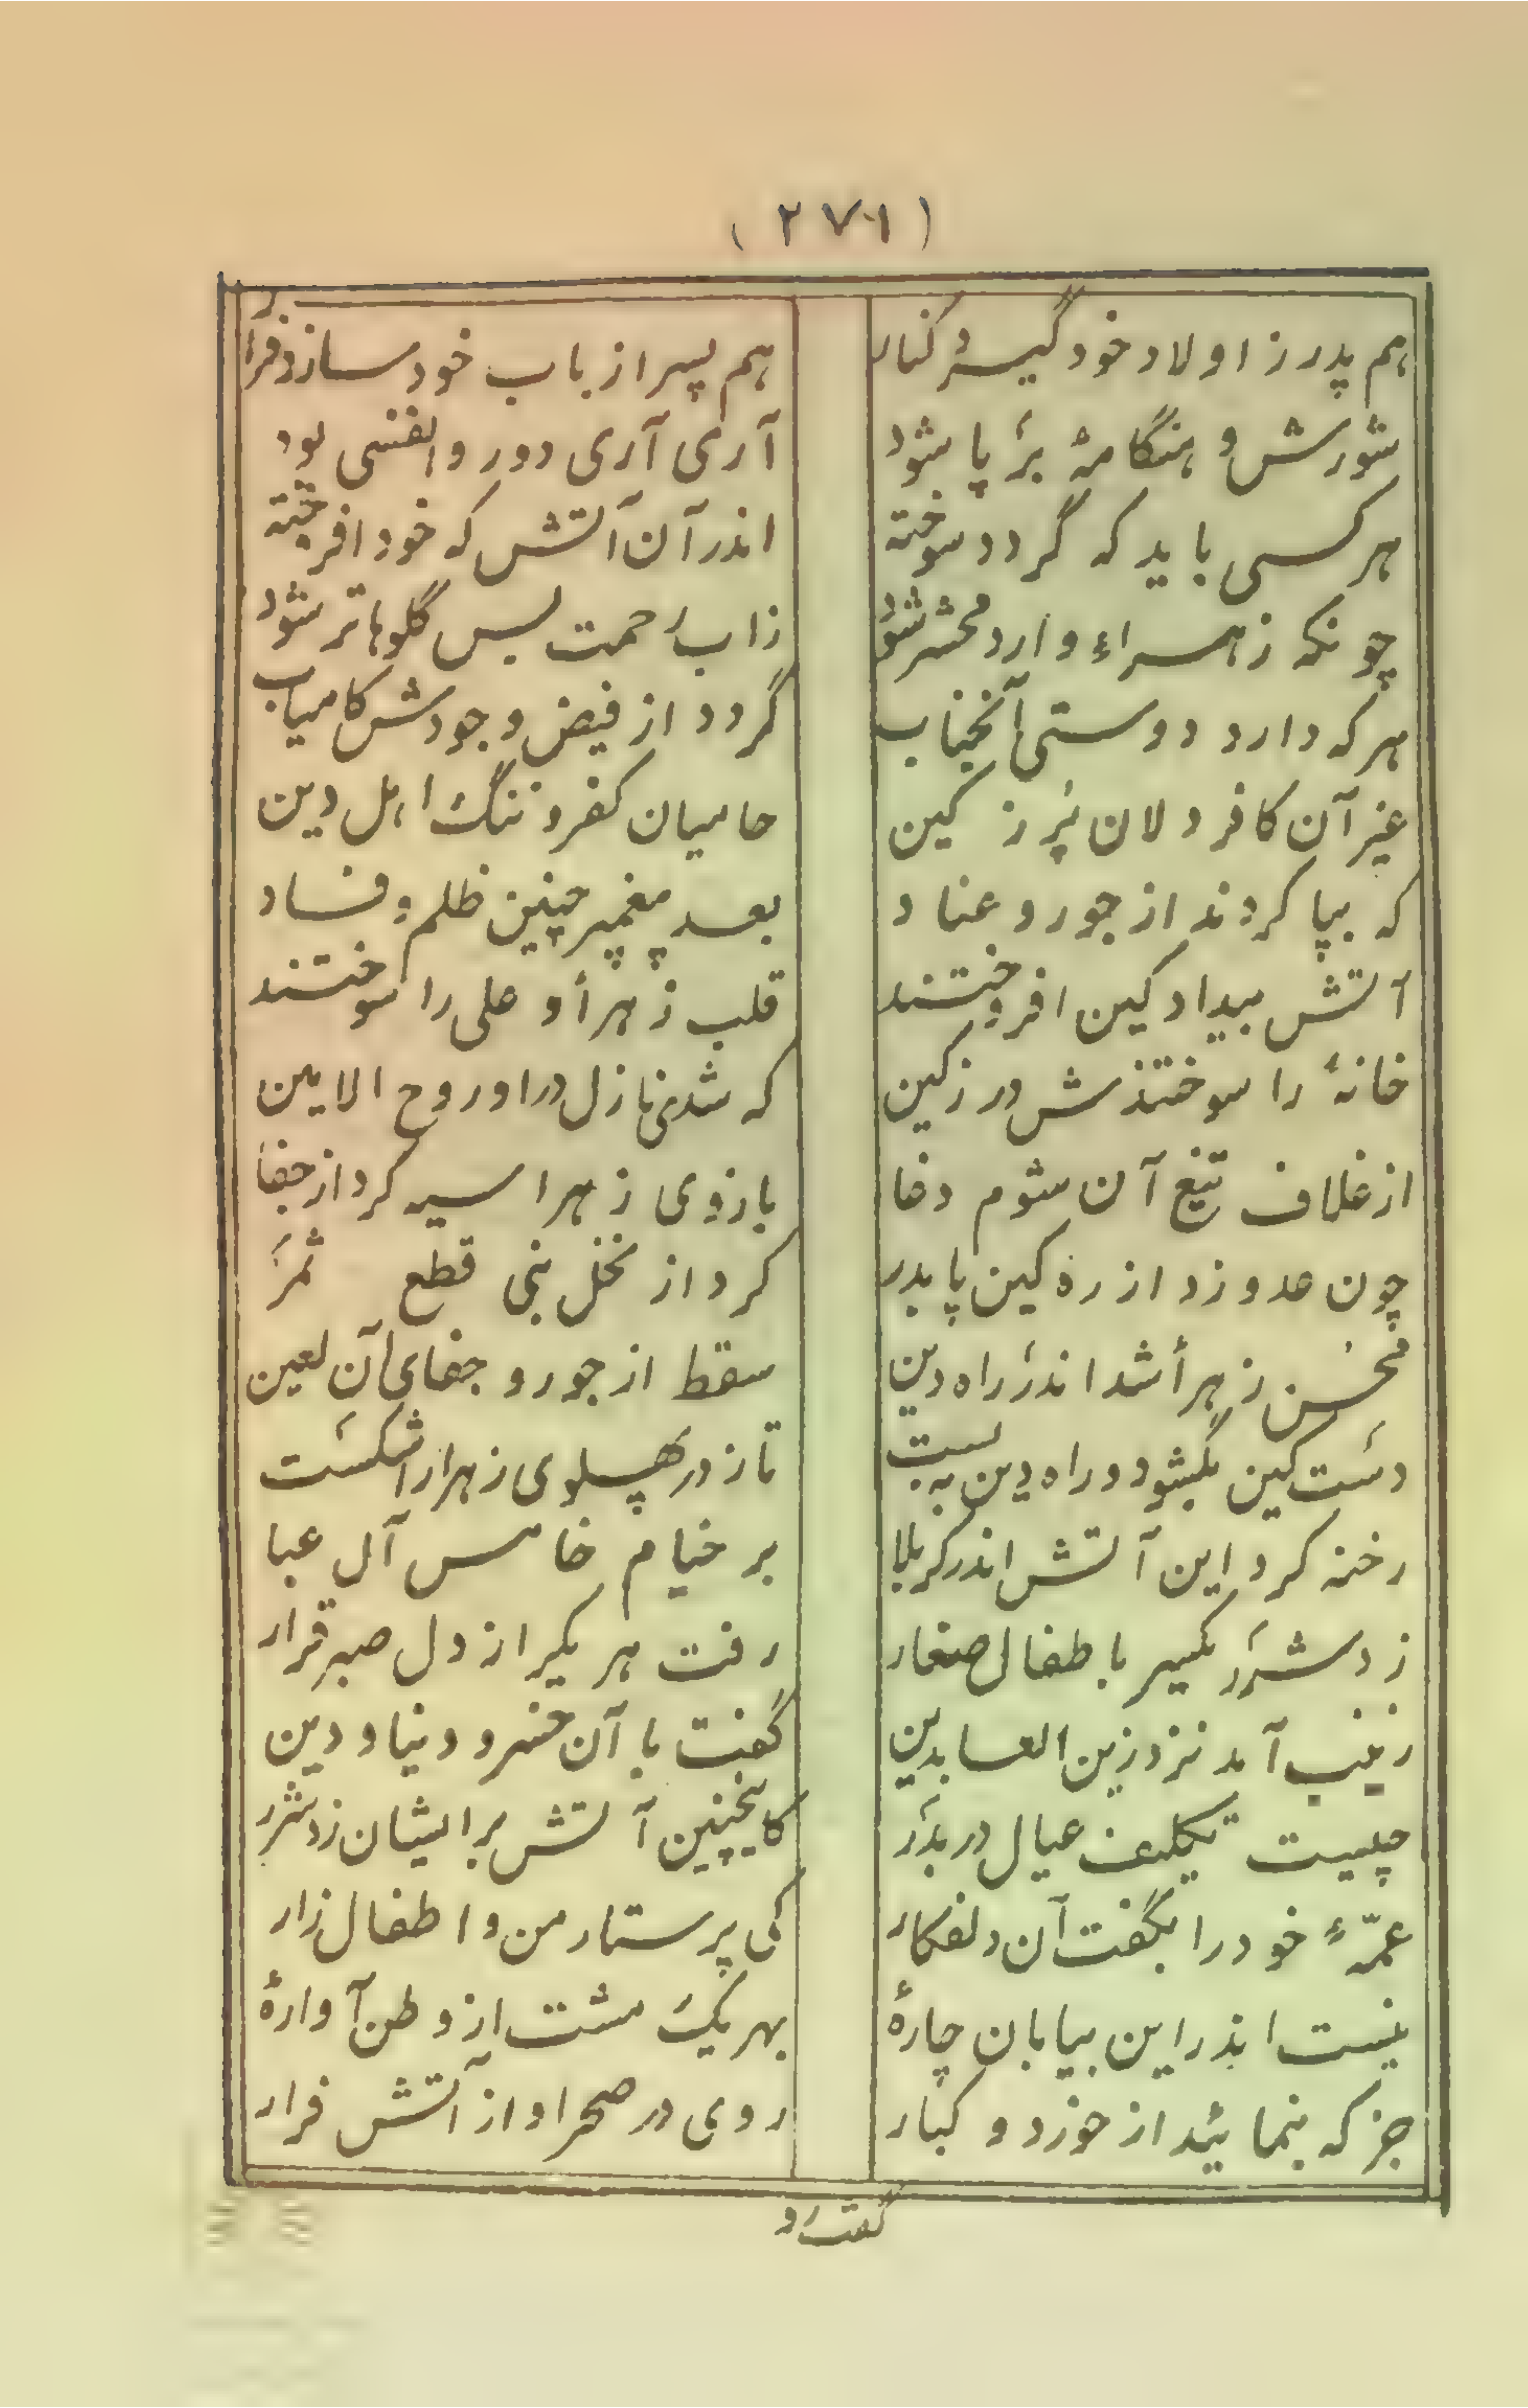 (۲۷۱)
هم پدر ز اولاد خود گیرد کنار
هم پسر از باب خود سازد فرار
شورش و هنگامهٔ بر پا شود
آری آری دور وانفسی بود
هر کسی باید که گردد سوخته
اندر آن آتش که خود افروخته
چونکه زهراء وارد محشر شود
زاب رحمت بس گلوها تر شود
هر که دارد دوستی آنجناب
گردد از فیض وجودش کامیاب
غیر آن کافر دلان پُر ز کین
حامیان کفر و ننگ اهل دین
که بپا کردند از جور و عناد
بعد پیغمبر چنین ظلم و فساد
آتش بیداد کین افروختند
قلب زهرأ و علی را سوختند
خانهٔ را سوختندش در ز کین
که شدی نازل در او روح الامین
از غلاف تیغ آن شوم دغا
بازوی زهرا سیه کرد از جفا
چون عدو زد از ره کین پا بدر
کرد از نخل نبی قطع ثمر
محسن زهرأ شد اندر راه دین
سقط از جور و جفای آن لعین
دست کین بگشود و راه دین به بست
تا ز در پهلوی زهرا را شکست
رخنه کرد این آتش اندر کربلا
بر خیام خامس آل عبا
زد شرر یکسر باطفال صغار
رفت هر یکیرا ز دل صبر قرار
زینب آمد نزد زین العابدین
گفت با آن خسرو دنیا و دین
چیست تکلیف عیال در بدر
کاینچنین آتش بر ایشان زد شرر
عمّهٔ خود را بگفت آن دلفکار
کی پرستار من و اطفال زار
نیست اندر این بیابان چارهٔ
بهر یک مشت از وطن آوارهٔ
جز که بنمائید از خورد و کبار
روی در صحرا و از آتش فرار
گفت رو